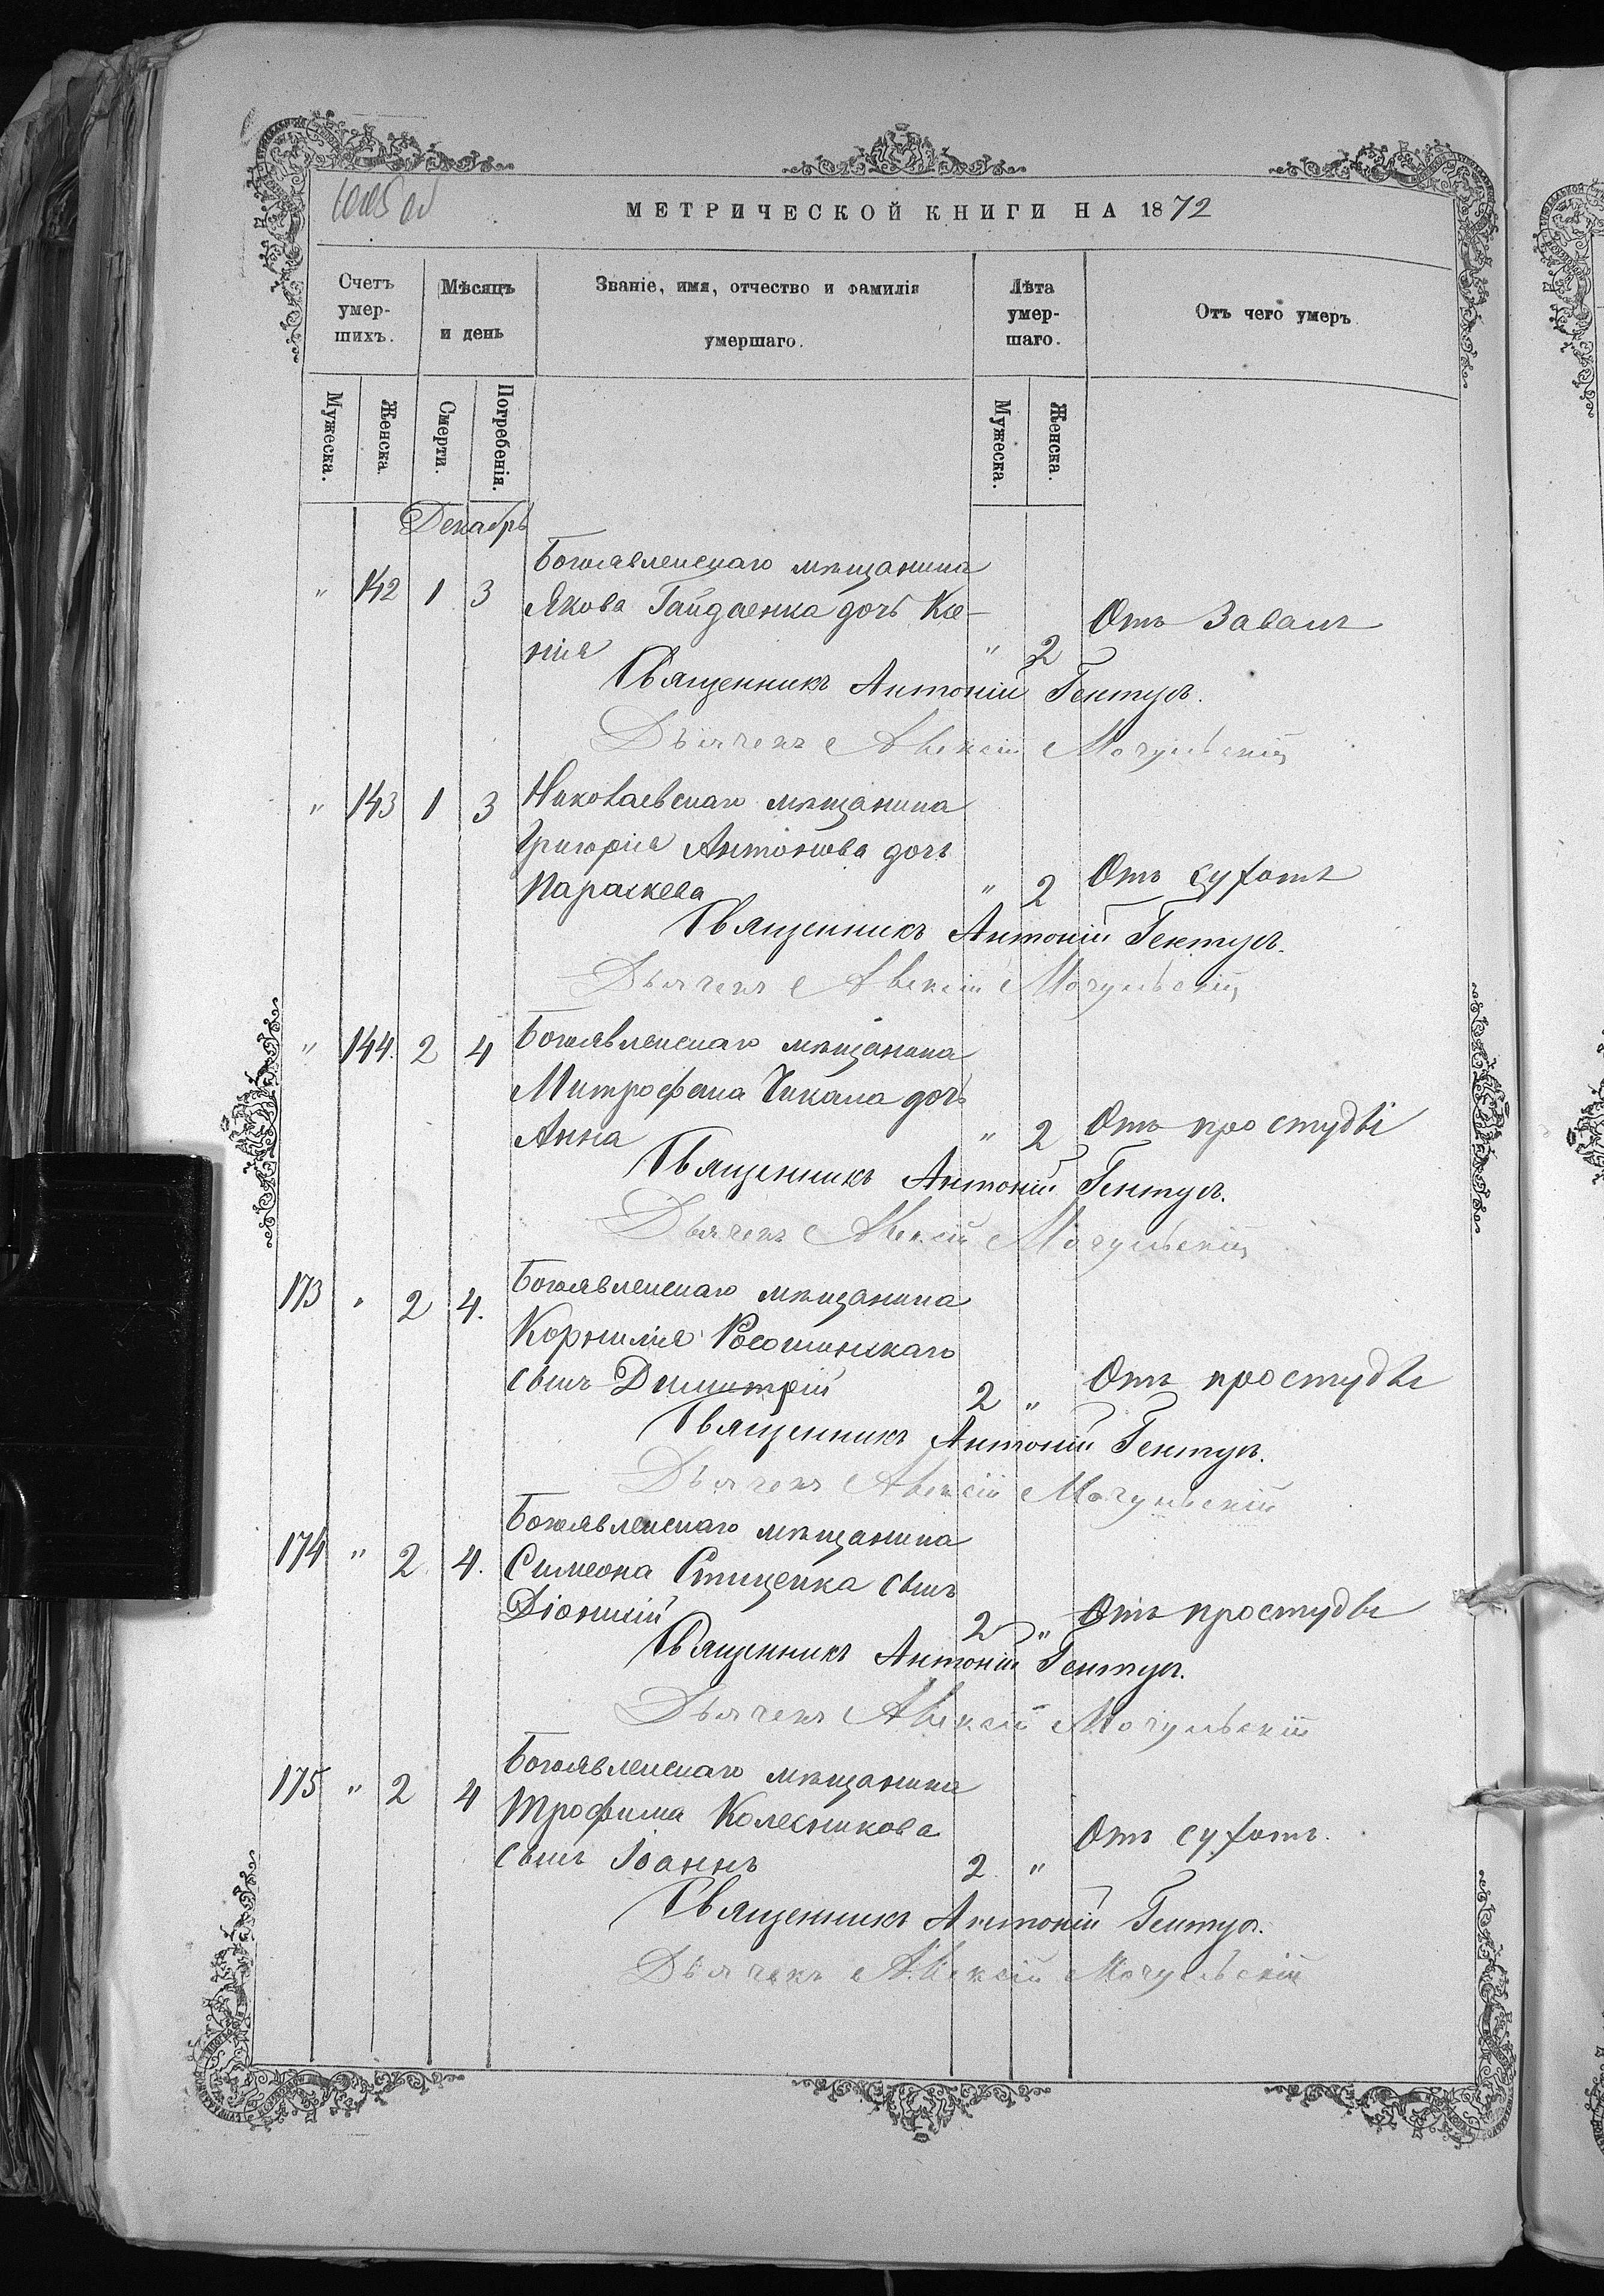 МЕТРИЧЕСКОЙ КНИГИ НА 1872
Счетъ умер-шихъ.
Мѣсяцъ и день
Званіе, имя, отчество и фамилія умершаго.
Лѣта умер-шаго.
Отъ чего умеръ
Мужеска.
Женска.
Смерти.
Погребенія.
Мужеска.
Женска.
Декабрь
Богоявленскаго мѣщанина
" 142 1 3 Якова Гайдаенка дочь Ксе-
нія " 2 Отъ Завалъ
Священникъ Антоній Гентуръ.
Дьячекъ Алексій Мочульскій
" 143 1 3 Николаевскаго мѣщанина
Григорія Антонова дочь
Параскева " 2 Отъ сухотъ
Священникъ Антоній Гентуръ.
Дьячекъ Алексій Мочульскій
" 144. 2 4 Богоявленскаго мѣщанина
Митрофана Чикала дочь
Анна " 2 Отъ простуды
Священникъ Антоній Гентуръ.
Дьячекъ Алексій Мочульскій
173 " 2 4. Богоявленскаго мѣщанина
Корнилія Росошинскаго
сынъ Димитрій 2 " Отъ простуды
Священникъ Антоній Гентуръ.
Дьячекъ Алексій Мочульскій
Богоявленскаго мѣщанина
174 " 2. 4. Симеона сынъ
Діонисій 2 " Отъ простуды
Священникъ Антоній Гентуръ.
Дьячекъ Алексій Мочульскій
175 " 2 4 Богоявленскаго мѣщанина
Трофима Колесникова
сынъ Іоаннъ 2. " Отъ сухотъ.
Священникъ Антоній Гентуръ.
Дьячекъ Алексій Мочульскій